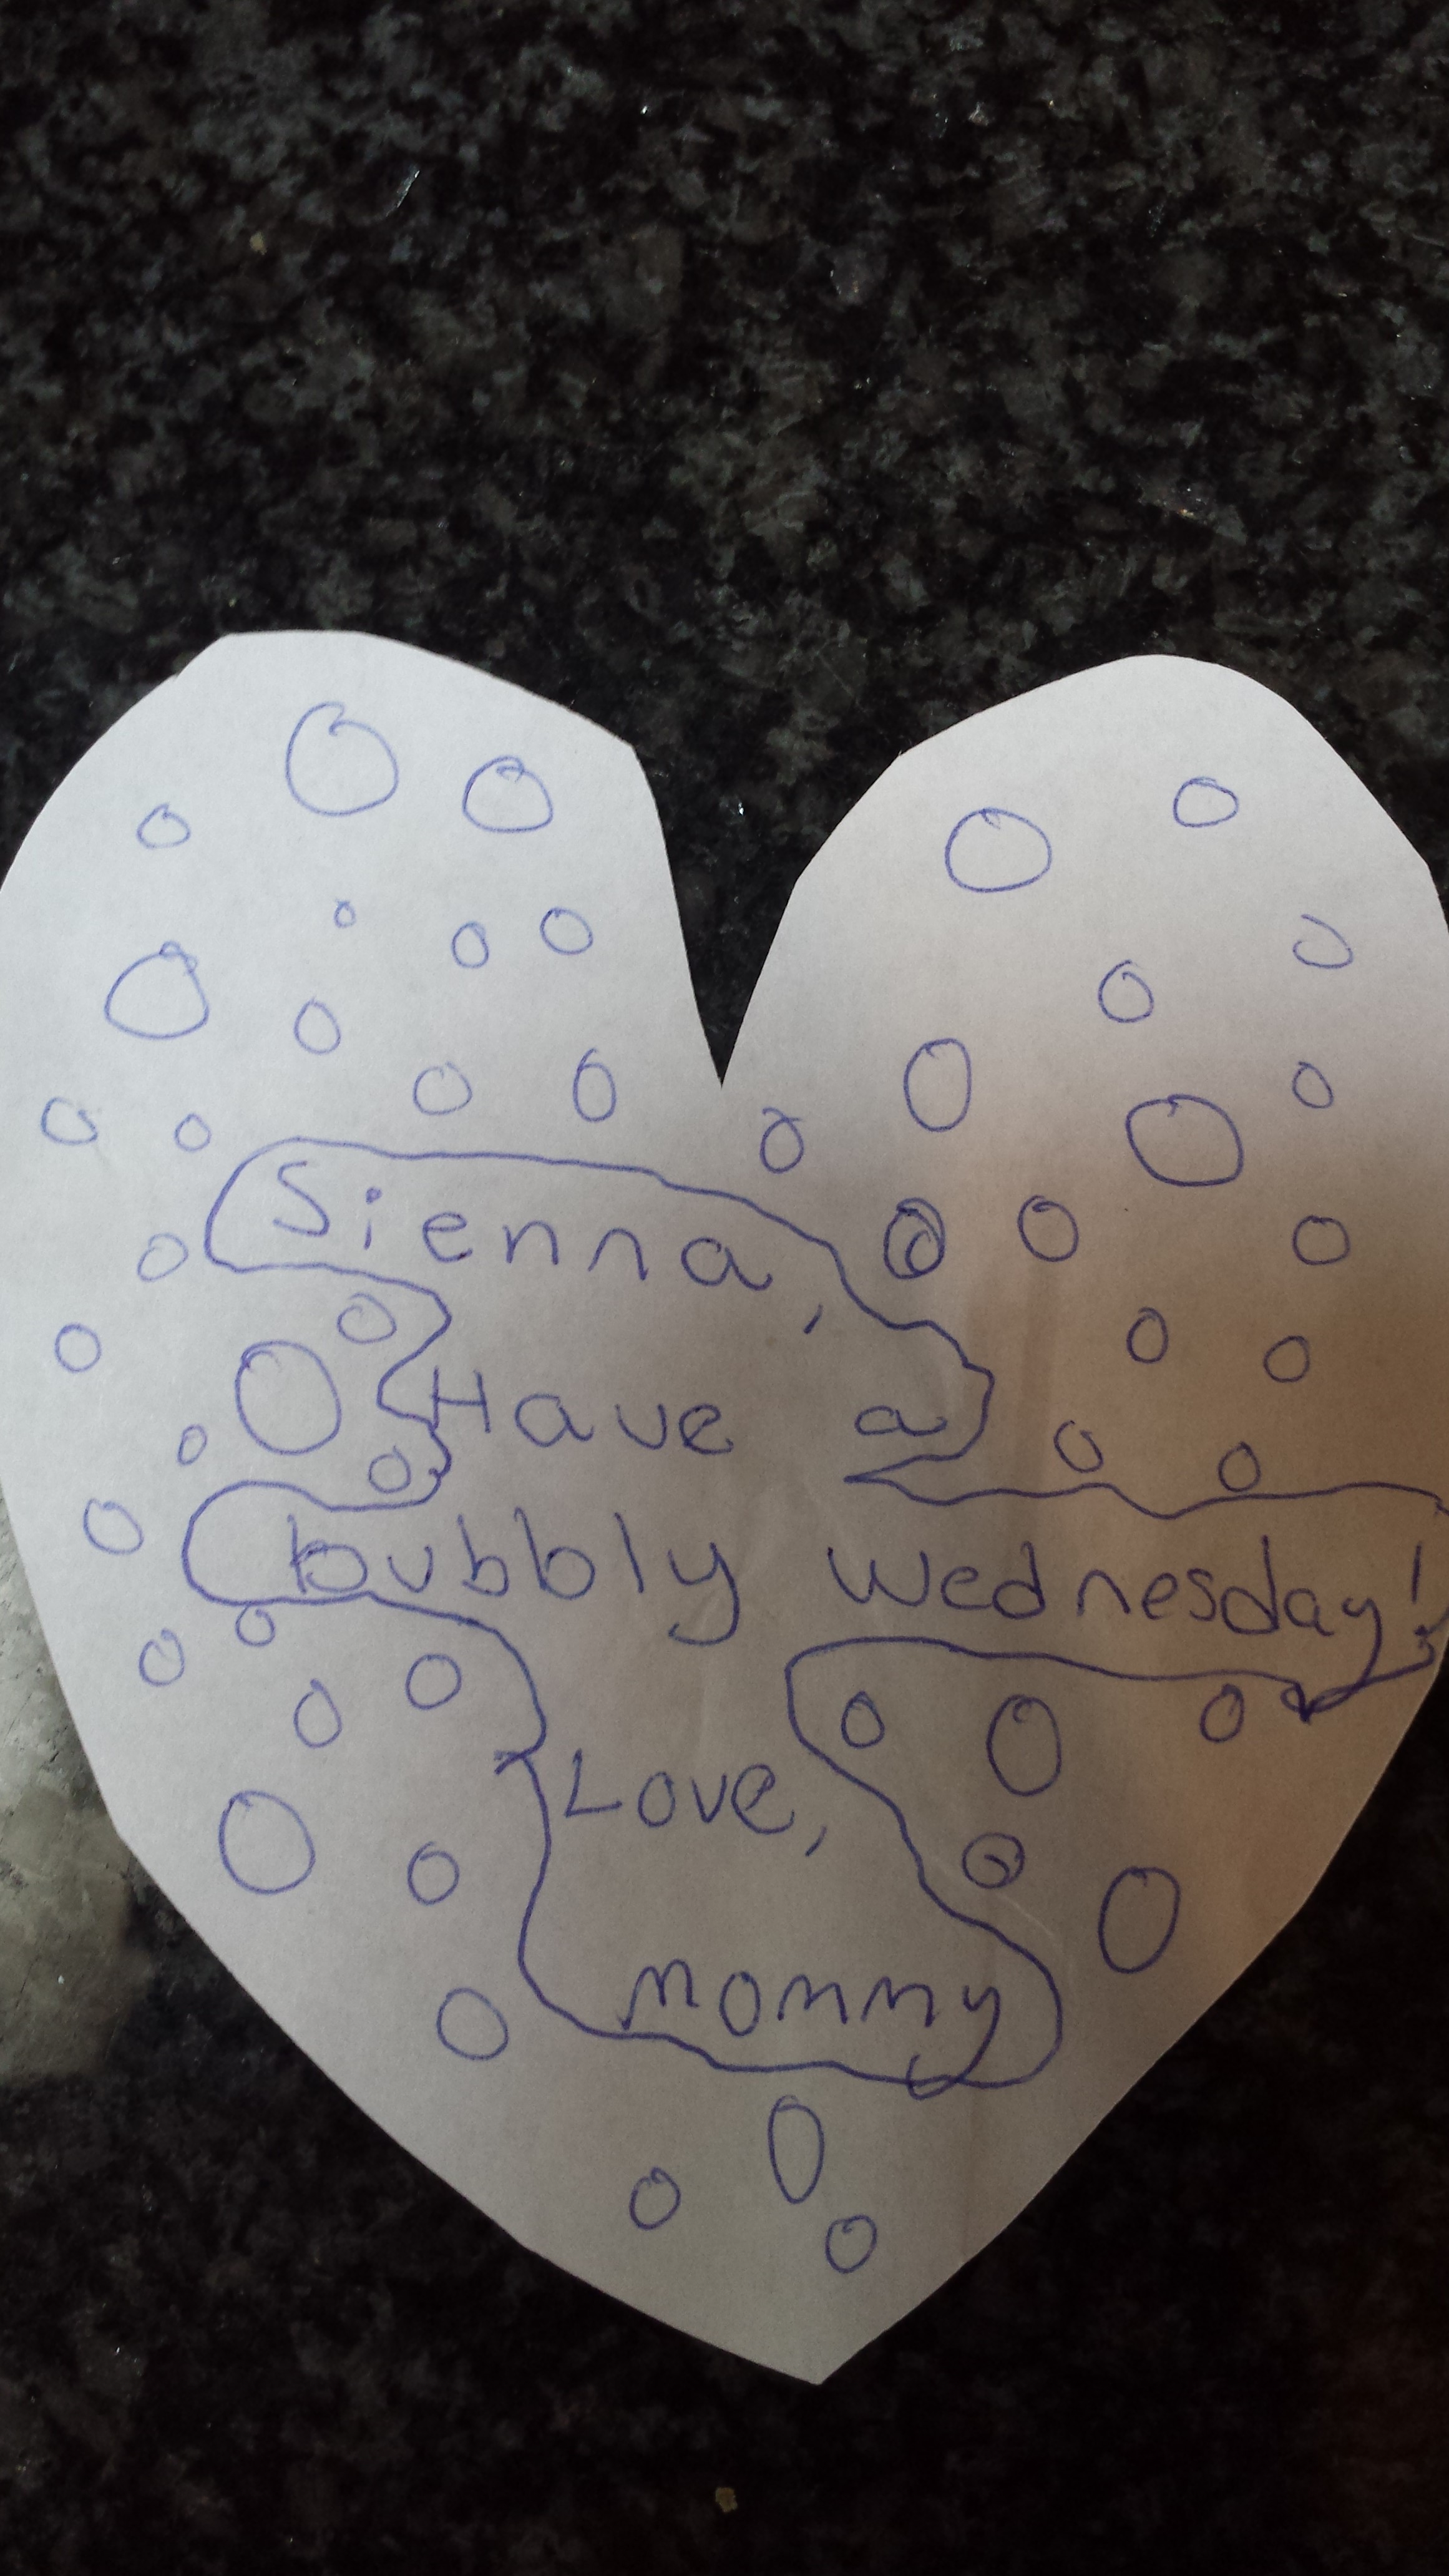 Sienna,
Have a
bubbly Wednesday!
Love,
mommy